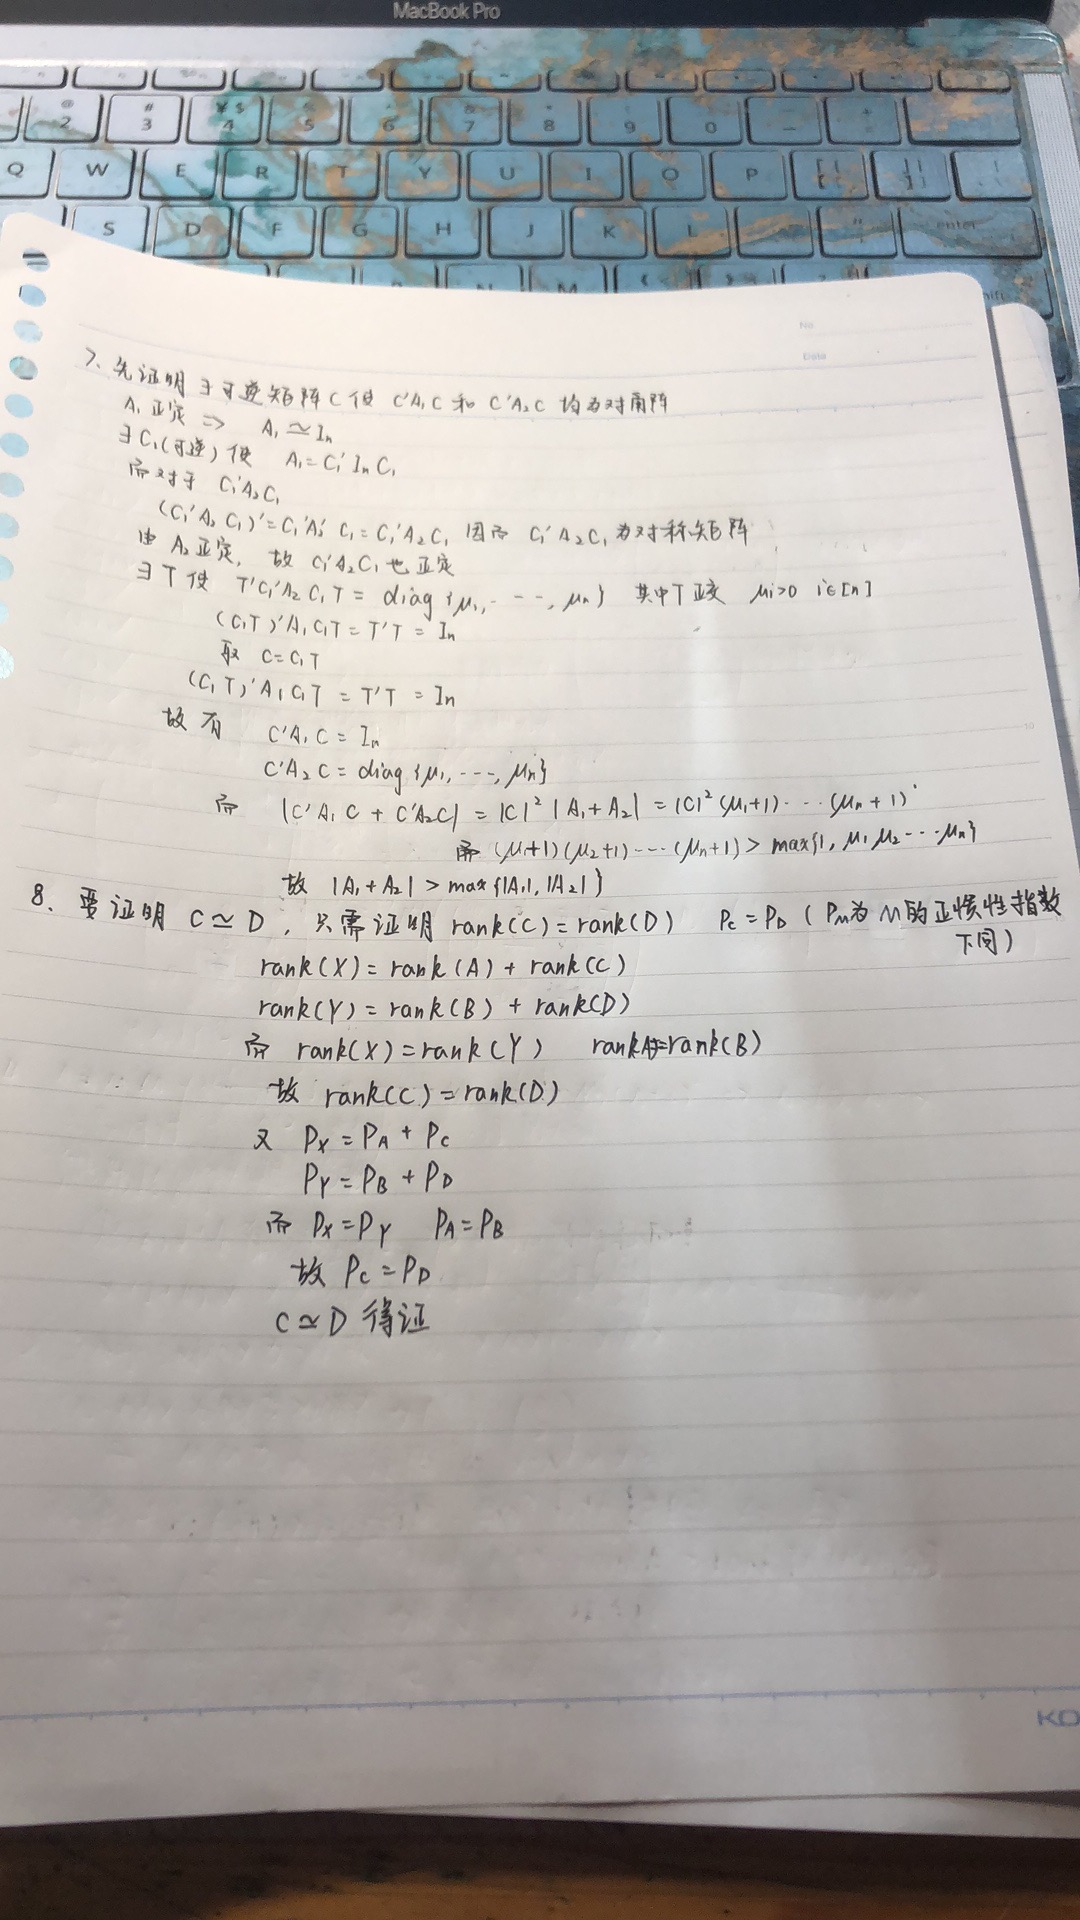 MacBook Pro
@ # ¥ $
2 3 4 5 6 7 8 9 0
Q W E R T Y U I O P
S D F G H J K L enter
N M
No
Date
7. 先证明∃可逆矩阵C使 C'A₁C 和 C'A₂C 均为对角阵
A₁正定 ⇒ A₁≃Iₙ
∃C₁(可逆)使 A₁=C₁'IₙC₁
而对于 C₁'A₂C₁
(C₁'A₂C₁)'=C₁'A₂'C₁=C₁'A₂C₁ 因而 C₁'A₂C₁为对称矩阵
由A₂正定,故C₁'A₂C₁也正定
∃T使 T'C₁'A₂C₁T = diag{μ₁,----,μₙ} 其中T正交 μi>0 i∈[n]
(C₁T)'A₁C₁T=T'T=Iₙ
取 C=C₁T
(C₁T)'A₁C₁T=T'T=Iₙ
故有 C'A₁C=Iₙ
C'A₂C=diag{μ₁,----,μₙ}
而 |C'A₁C+C'A₂C|=|C|²|A₁+A₂|=|C|²(μ₁+1)---(μₙ+1)
而(μ₁+1)(μ₂+1)----(μₙ+1)>max{1,μ₁μ₂---μₙ}
故 |A₁+A₂|>max{|A₁|,|A₂|}
8. 要证明 C≃D,只需证明 rank(C)=rank(D) P_C=P_D(P_M为M的正惯性指数
下同)
rank(X)=rank(A)+rank(C)
rank(Y)=rank(B)+rank(D)
而 rank(X)=rank(Y) rankA=rank(B)
故 rank(C)=rank(D)
又 P_X=P_A+P_C
P_Y=P_B+P_D
而 P_X=P_Y P_A=P_B
故 P_C=P_D
C≃D 得证
KO